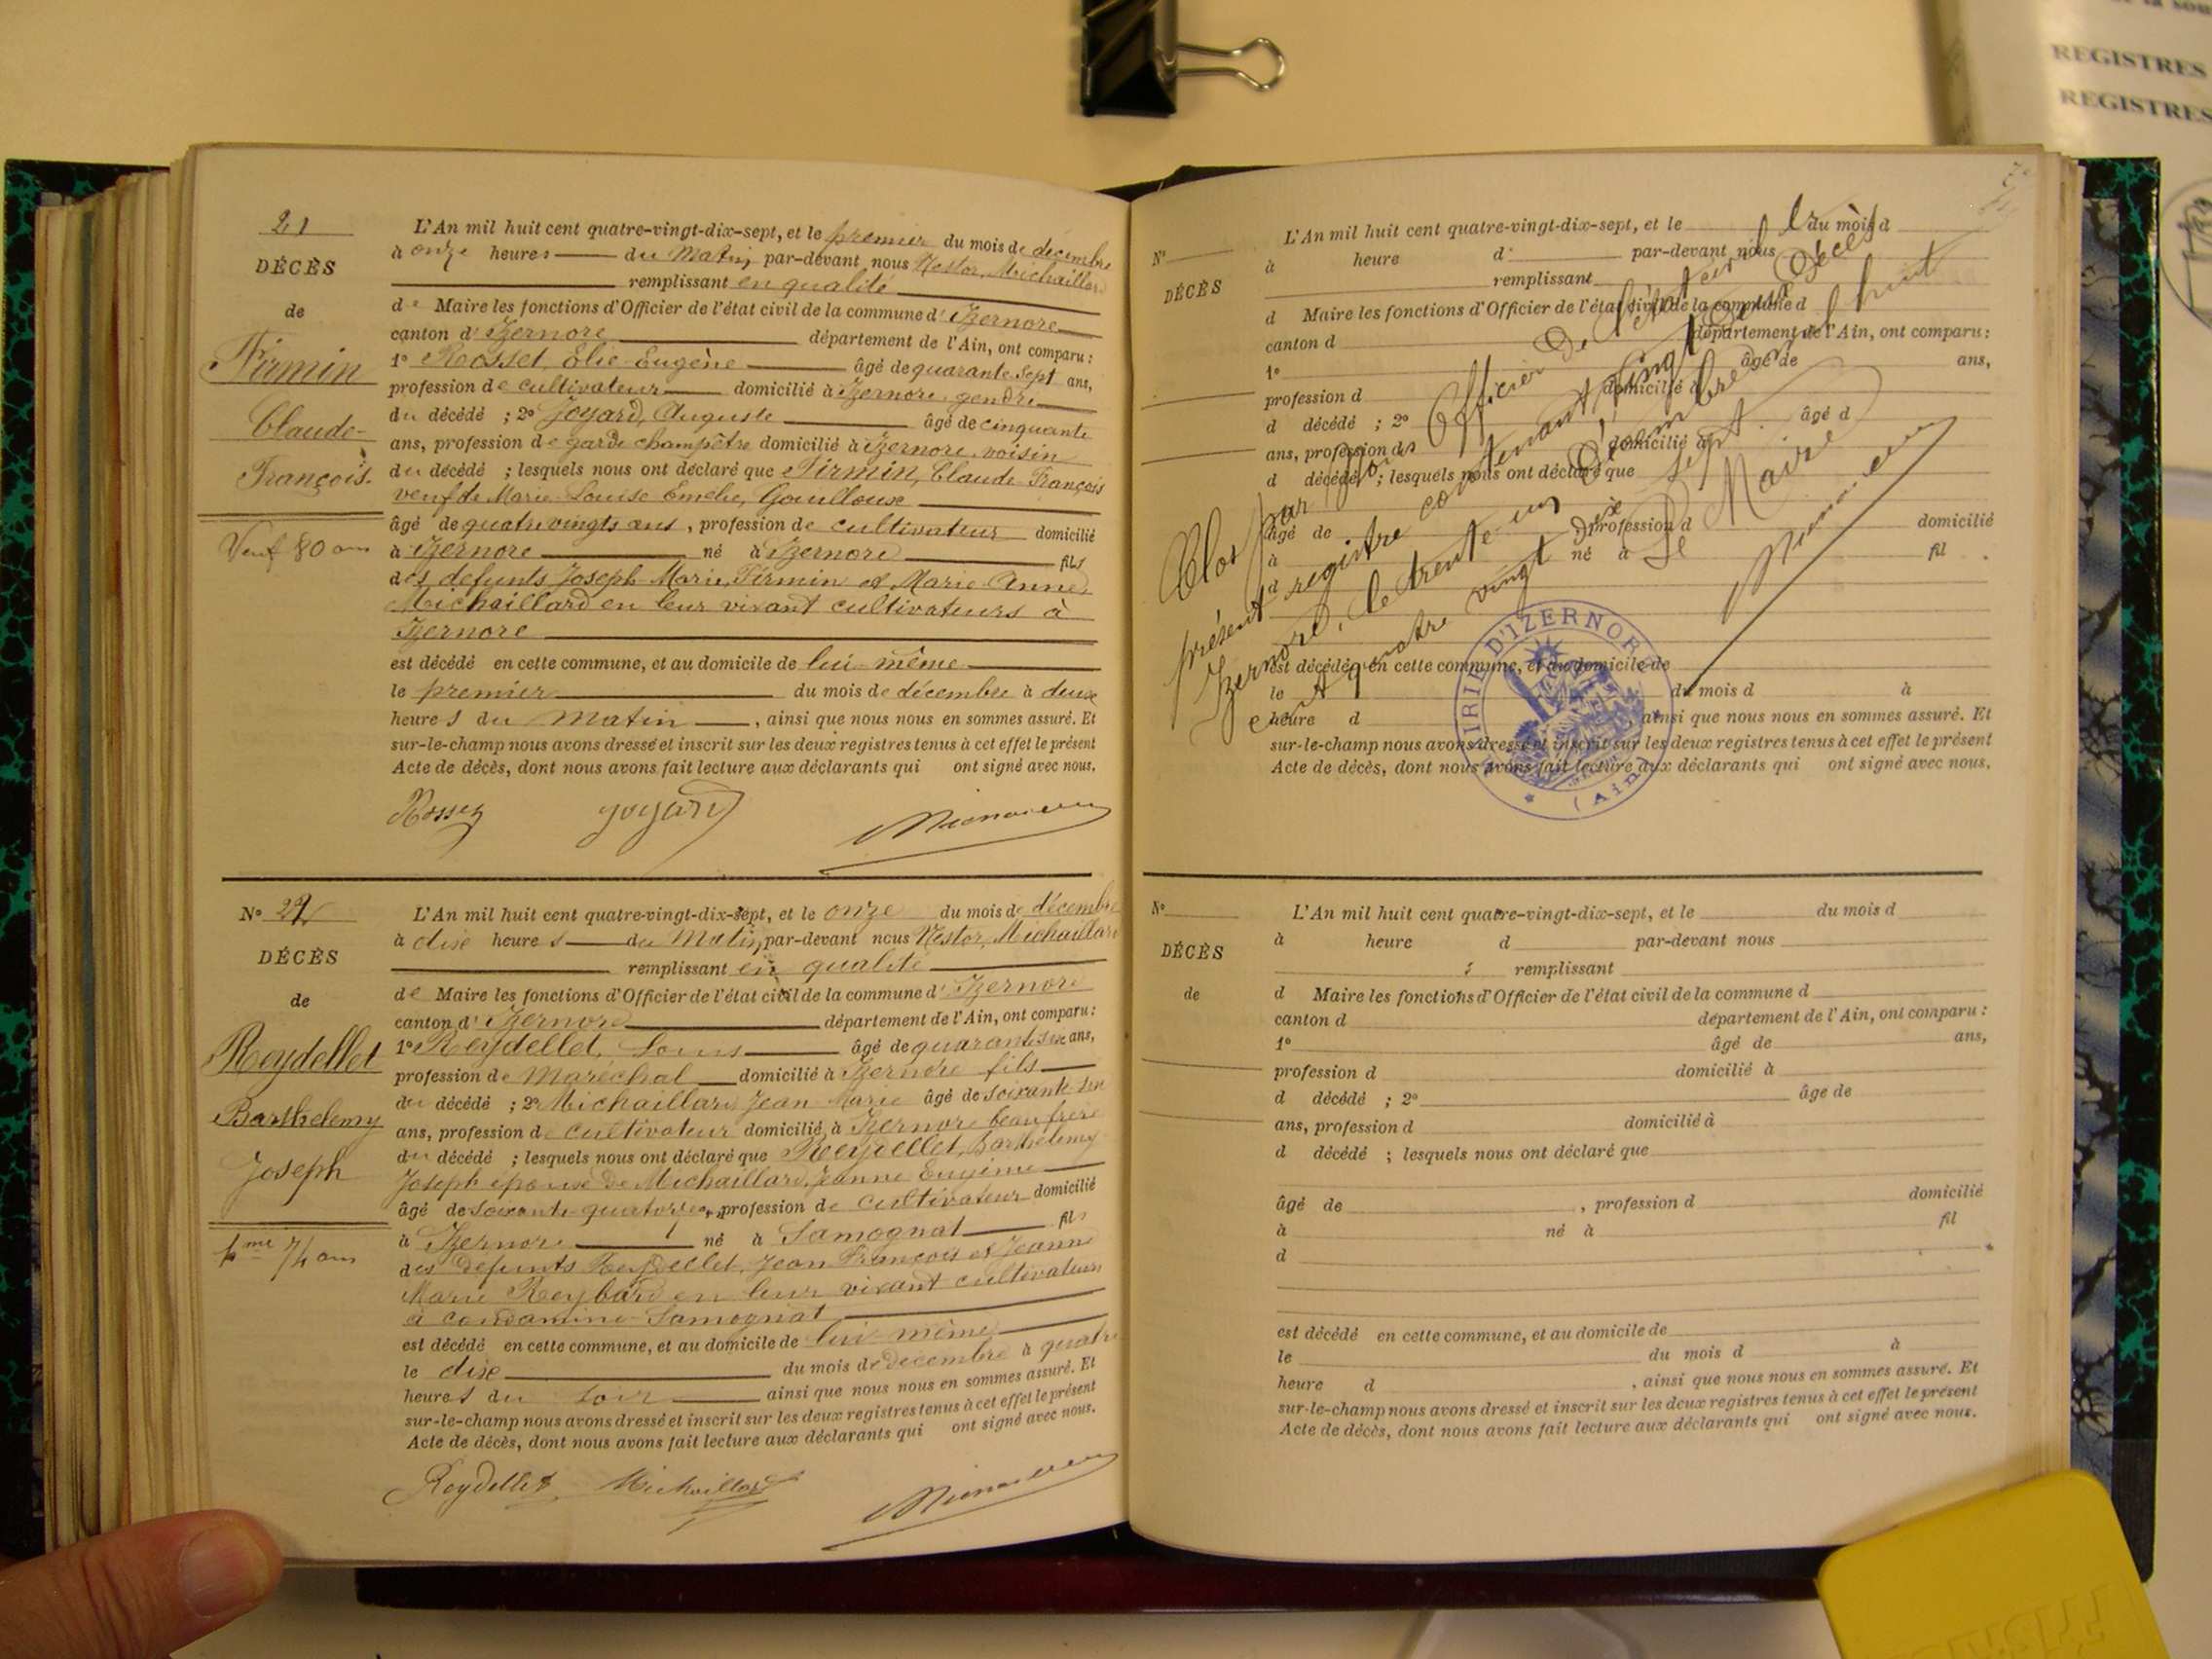 REGISTRES
REGISTRES
21
DÉCÈS
de
Firmin
Claude-
François.
Veuf 80 ans
L'An mil huit cent quatre-vingt-dix-sept, et le premier du mois de décembre
à onze heures du Matin, par-devant nous Nestor, Michaillard
remplissant en qualité
de Maire les fonctions d'Officier de l'état civil de la commune d'Izernore
canton d'Izernore département de l'Ain, ont comparu :
1° Rosset, Elie Eugène âgé de quarante sept ans,
profession de cultivateur domicilié à Izernore gendre
du décédé ; 2° Joyard, Auguste âgé de cinquante
ans, profession de garde champêtre domicilié à Izernore voisin
du décédé ; lesquels nous ont déclaré que Firmin, Claude François
veuf de Marie Louise Emelie, Goulloux
âgé de quatrevingts ans, profession de cultivateur domicilié
à Izernore né à Izernore fils
des defunts Joseph Marie, Firmin et Marie Anne
Michaillard en leur vivant cultivateurs à
Izernore
est décédé en cette commune, et au domicile de lui même
le premier du mois de décembre à deux
heures du Matin, ainsi que nous nous en sommes assuré. Et
sur-le-champ nous avons dressé et inscrit sur les deux registres tenus à cet effet le présent
Acte de décès, dont nous avons fait lecture aux déclarants qui ont signé avec nous.
Rosset Joyard
N° 22
DÉCÈS
de
Reydellet
Barthelemy
Joseph
74 ans
L'An mil huit cent quatre-vingt-dix-sept, et le onze du mois de décembre
à dix heures du Matin, par-devant nous Nestor, Michaillard
remplissant en qualité
de Maire les fonctions d'Officier de l'état civil de la commune d'Izernore
canton d'Izernore département de l'Ain, ont comparu :
1° Reydellet, Louis âgé de quarante six ans,
profession de Marechal domicilié à Izernore fils
du décédé ; 2° Michaillard Jean Marie âgé de soixante
ans, profession de cultivateur domicilié à Izernore beau frère
du décédé ; lesquels nous ont déclaré que Reydellet, Barthelemy
Joseph époux de Michaillard, Jeanne Eugénie
âgé de soixante quatorze ans, profession de cultivateur domicilié
à Izernore né à Samognat fils
des defunts Reydellet, Jean François et Jeanne
Marie Reybard en leur vivant cultivateurs
à Condamine Samognat
est décédé en cette commune, et au domicile de lui même
le dix du mois de decembre à quatre
heures du soir ainsi que nous nous en sommes assuré. Et
sur-le-champ nous avons dressé et inscrit sur les deux registres tenus à cet effet le présent
Acte de décès, dont nous avons fait lecture aux déclarants qui ont signé avec nous.
Reydellet Michaillard
N°
DÉCÈS
L'An mil huit cent quatre-vingt-dix-sept, et le du mois d
à heure d par-devant nous
remplissant
d Maire les fonctions d'Officier de l'état civil de la commune d
canton d département de l'Ain, ont comparu :
1° âgé de ans,
profession d domicilié à
d décédé ; 2° âgé d
ans, profession d domicilié à
d décédé ; lesquels nous ont déclaré que
âgé de profession d domicilié
à né à fil
d
est décédé en cette commune, et au domicile de
le du mois d à
heure d , ainsi que nous nous en sommes assuré. Et
sur-le-champ nous avons dressé et inscrit sur les deux registres tenus à cet effet le présent
Acte de décès, dont nous avons fait lecture aux déclarants qui ont signé avec nous.
Clos par Officier de l'état civil le
présent registre contenant vingt deux Décès
Izernore, le trente un Décembre mil huit
cent quatre vingt dix sept.
Le Maire
MAIRIE D'IZERNORE
(Ain)
N°
DÉCÈS
de
L'An mil huit cent quatre-vingt-dix-sept, et le du mois d
à heure d par-devant nous
remplissant
d Maire les fonctions d'Officier de l'état civil de la commune d
canton d département de l'Ain, ont comparu :
1° âgé de ans,
profession d domicilié à
d décédé ; 2° âge de
ans, profession d domicilié à
d décédé ; lesquels nous ont déclaré que
âgé de , profession d domicilié
à né à fil
d
est décédé en cette commune, et au domicile de
le du mois d à
heure d , ainsi que nous nous en sommes assuré. Et
sur-le-champ nous avons dressé et inscrit sur les deux registres tenus à cet effet le présent
Acte de décès, dont nous avons fait lecture aux déclarants qui ont signé avec nous.